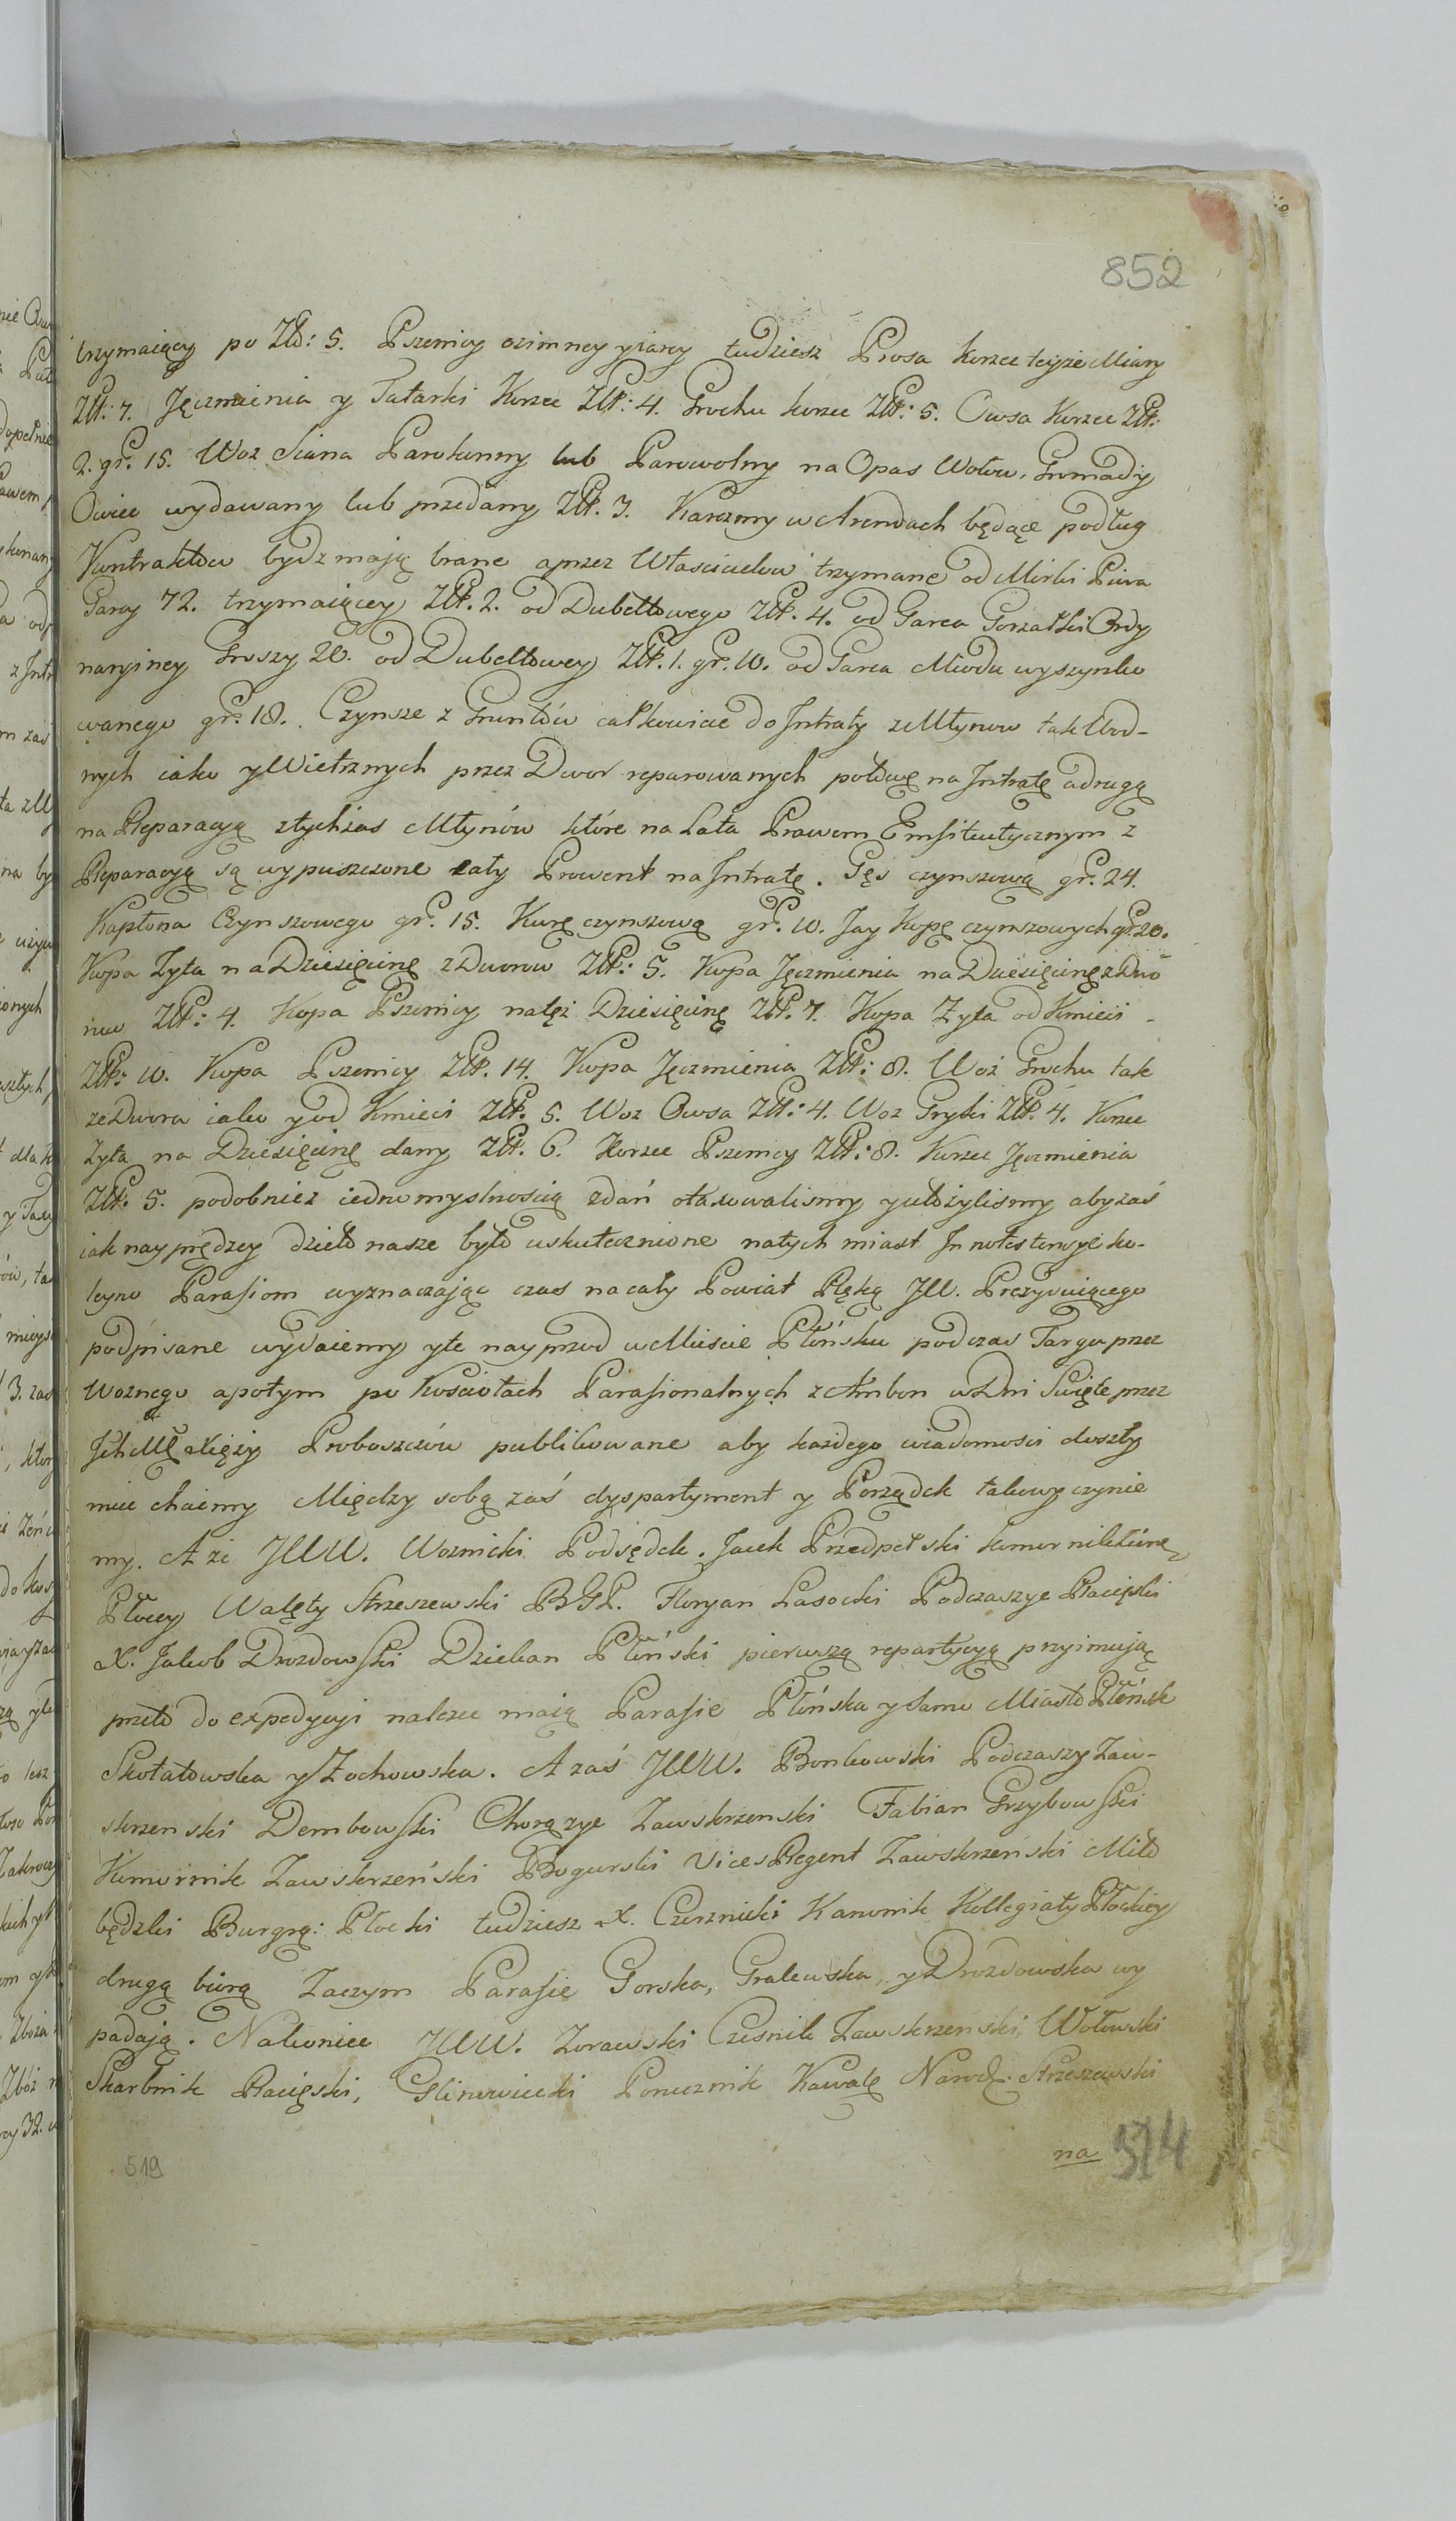 852
trzymaiący po Złł: 5. Pszenicy ozimney y iarey tudziesz Prosa korzec teyże Miary
Złł: 7. Jęczmienia y Tatarki Korzec Złł: 4. Grochu korzec Złł: 5. Owsa Korzec Złł:
2. gr. 15. Woz Siana Parokonny lub Parowolny na Opas Wołow, Gromady
Owiec wydawany lub przedany Złł. 3. Karczmy w Arendach będące podług
Kontraktow bydz mają brane a przez Włascicielow trzymane od Mirki Piwa
Garcy 72. trzymaiącey Złł. 2. od Dubeltowego Złł. 4. od Garca Gorzałki Ordy
naryiney Groszy 20. od Dubeltowey Złł. 1. gr. 10. od Garca Miodu wyszynko
wanego gr. 18. Czynsze z Gruntów całkowicie do Jntraty z Młynow tak Wod-
nych iako y Wietrznych przez Dwor reparowanych połowę na Jntratę a drugą
na Reparacyą z tych zas Młynów które na Lata Prawem Emfiteutycznym z
Reparacyą są wypuszczone cały Prowent na Jntratę. Gęs czynszową gr. 24.
Kapłona Czynszowego gr. 15. Kurę czynszową gr. 10. Jay Kopę czynszowych gr. 20.
Kopa Zyta na Dziesięcinę z Dworow Złł: 5. Kopa Jęczmienia na Dziesięcinę z Dwo
row Złł: 4. Kopa Pszenicy na tęż Dziesięcinę Złł. 7. Kopa Zyta od Kmieci
Złł: 10. Kopa Pszenicy Złł. 14. Kopa Jęczmienia Złł: 8. Woz Grochu tak
ze Dwora iako y od Kmieci Złł. 5. Woz Owsa Złł: 4. Woz Gryki Złł. 4. Korzec
Zyta na Dziesięcinę dany Złł. 6. Korzec Pszenicy Złł: 8. Korzec Jęczmienia
Złł. 5. podobniez iednomyslnoscią zdań otaxowalismy y ułożylismy aby zaś
iak nayprędzey dzieło nasze było uskutecznione natych miast Jnnotestencye ko-
leyno Parafiom wyznaczając czas na cały Powiat Ręką JW. Prezyduiącego
podpisane wydaiemy y te nayprzod w Miescie Płońsku podczas Targu przez
Woznego a potym po Kosciołach Parafionalnych z Ambon w Dni Swięte przez
Jch Mę Xięży Proboszczów publikowane aby każdego wiadomosci doszły
miec chcemy Między sobą zaś dyspartyment y Porządek takowy czynie
my. A ze JWW. Woznicki Podsędek. Jacek Przedpełski komornik
Płocey Walęty Strzeszewski BGP. Floryan Lasocki Podczaszyc Raciąski
X. Jakob Drozdowski Dziekan Płński pierwszą repartycyą przyimują
przeto do expedycyi nalezec mają Parafie Płońska y samo Miasto Płońsk
Skołatowska y Żochowska. A zaś JWW. Bonkowski Podczaszy Zaw-
skrzenski Dembowski Chorązyc Zawskrzenski Fabian Grzybowski
Komornik Zawskrzeński Bogurski Vices Regent Zawskrzeński Miło
będzki Burgrą: Płocki tudziesz X. Czerznicki Kanonik Kollegiaty Płockiey
drugą biorą Zaczym Parafie Gorska, Gralewska, y Drozdowska wy
padają. Nakoniec JWW. Zorawski Czesnik Zawskrzenski, Wołowski
Skarbnik Raciąski, Glinowiecki Porucznik Kawalę Narod. Strzeszewski
na
519
514